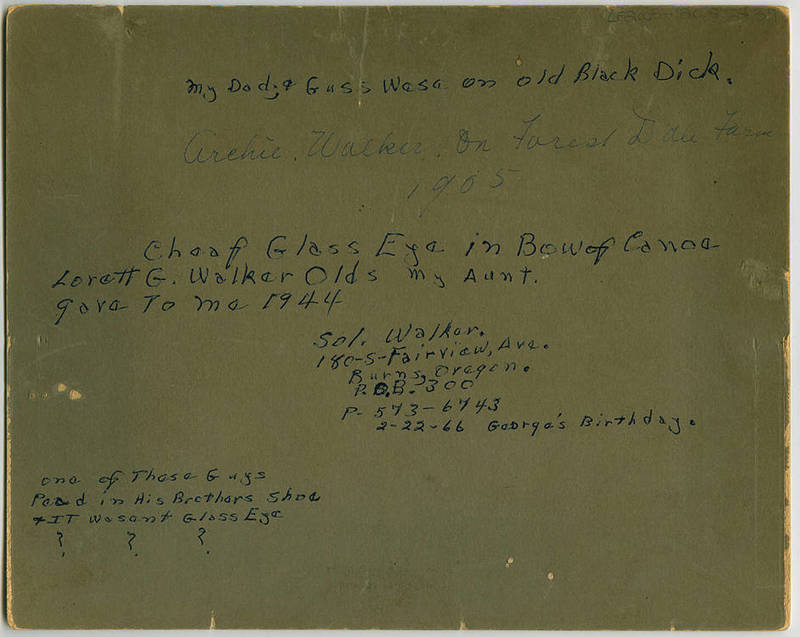 My Dady & Guss Wese on old Black Dick.
Archie. Walker. On Forest Farm
1905
Cheaf Glass Eye in Bow of Canoe
Lorett G. Walker Olds my Aunt.
gave To me 1944
Sol. Walker.
180-S-Fairview, Ave.
Burns, Oregon.
P.O.B. 300
P- 573-6743
2-22-66 George's Birthday.
one of These Guys
Peed in His Brothers Shoe
+ IT Wasent Glass Eye
? ? ?